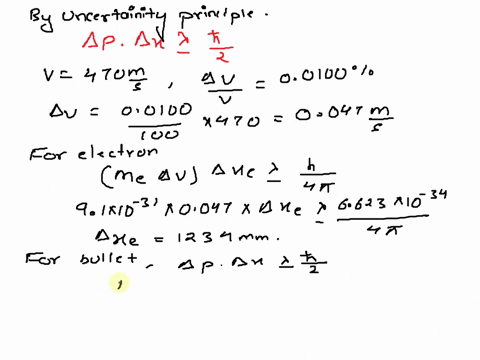 By uncertainity principle.
Δp.Δx ≥ ħ/2
V = 470 m/s , ΔV/V = 0.0100%
Δv = 0.0100/100 × 470 = 0.047 m/s
For electron
(me Δv) Δxe ≥ h/4π
9.1×10⁻³¹ × 0.047 × Δxe ≥ 6.623×10⁻³⁴/4π
Δxe = 1234 mm.
For bullet, Δp.Δx ≥ ħ/2